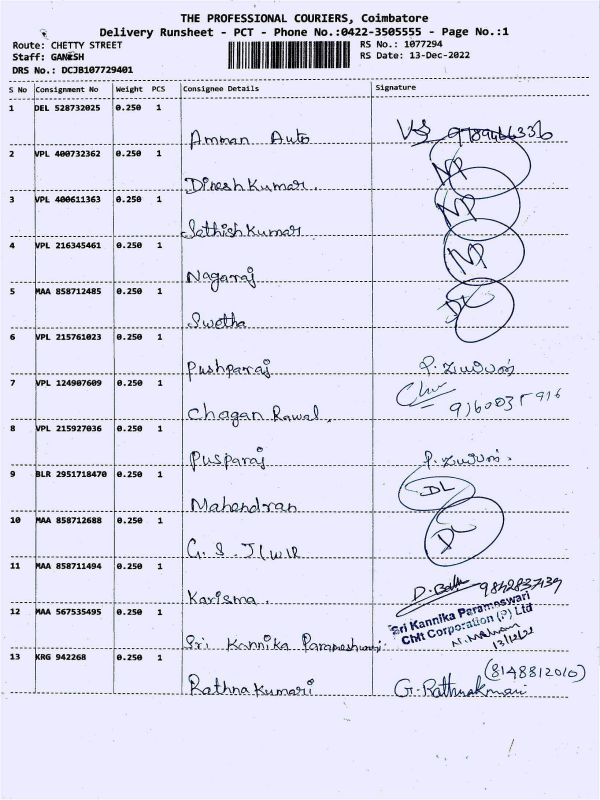 THE PROFESSIONAL COURIERS, Coimbatore
Delivery Runsheet - PCT - Phone No.:0422-3505555 - Page No.:1
Route: CHETTY STREET
RS No.: 1077294
Staff: GANESH
RS Date: 13-Dec-2022
DRS No.: DCJB107729401
S No Consignment No Weight PCS Consignee Details Signature
1 DEL 528732025 0.250 1
Amman Auto
2 VPL 400732362 0.250 1
Dinesh Kumar. NP
3 VPL 400611363 0.250 1
Sathish Kumar NP
4 VPL 216345461 0.250 1
Nagaraj NP
5 MAA 858712485 0.250 1
Swetha DL
6 VPL 215761023 0.250 1
Pushparaj
7 VPL 124907609 0.250 1
Chagan Rawal.
8 VPL 215927036 0.250 1
Pusparaj
9 BLR 2951718470 0.250 1
Mahendran DL
10 MAA 858712688 0.250 1
G. S. DL
11 MAA 858711494 0.250 1
Karisma.
12 MAA 567535495 0.250 1
Sri Kannika Parameshwari
Sri Kannika Parameswari
Chit Corporation (P) Ltd
13/12/22
13 KRG 942268 0.250 1
(8148812010)
Rathna Kumari G. Rathnakmari